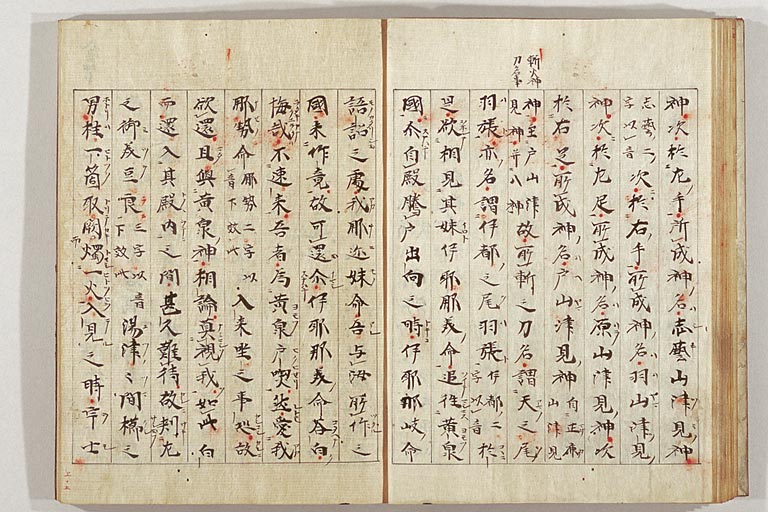 斬火神
刀之事
神次於左手所成神名志藝山津見神
志藝二
字以音次於右手所成神名羽山津見
神次於左足所成神名原山津見神次
於右足所成神名戸山津見神自正鹿
山津見
神至戸山津
見神并八神故所斬之刀名謂天之尾
羽張亦名謂伊都之尾羽張伊都二
字以音於
是欲相見其妹伊耶那美命追往黄泉
國介自殿騰戸出向之時伊耶那岐命
語詔之愛我那迩妹命吾与汝所作之
國未作竟故可還介伊耶那美命答白
悔哉不速来吾者為黄泉戸喫然愛我
那勢命那勢二字以
音下效此入来坐之事恐故
欲還且與黄泉神相論莫視我如此白
而還入其殿内之間甚久難待故刺左
之御美豆良三字以音
下效此湯津之間櫛之
男柱一箇取闕燭一火入見之時宇士